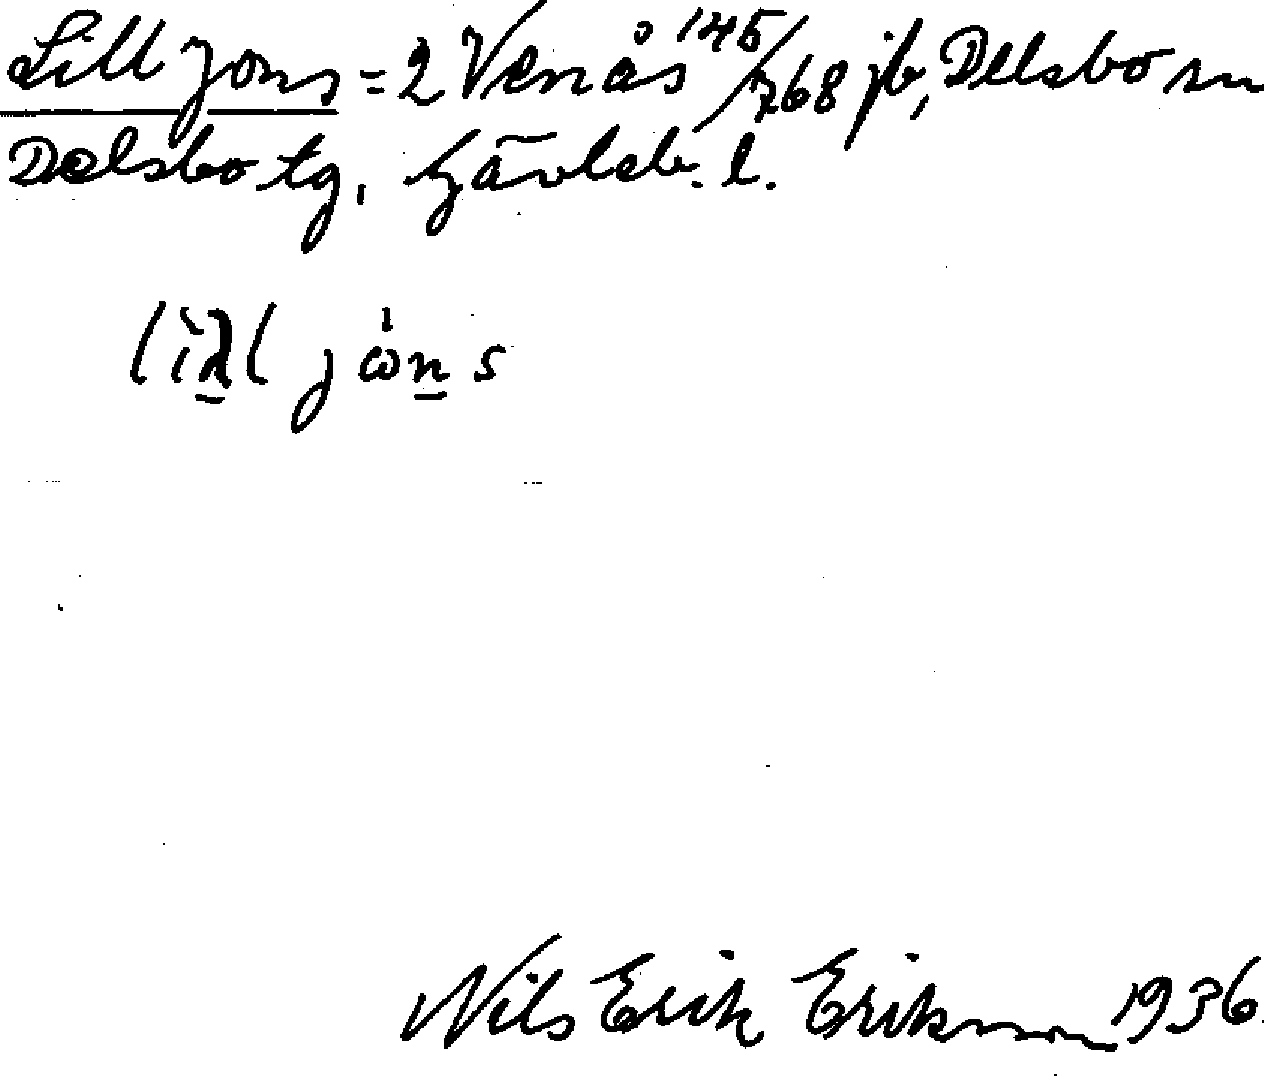 Lill Jons = 2 Venås 145/768 jb, Delsbo sn
Delsbo tg, Gävleb. l.
lìλl jω̇n̠s
Nils Erik Erikson 1936.